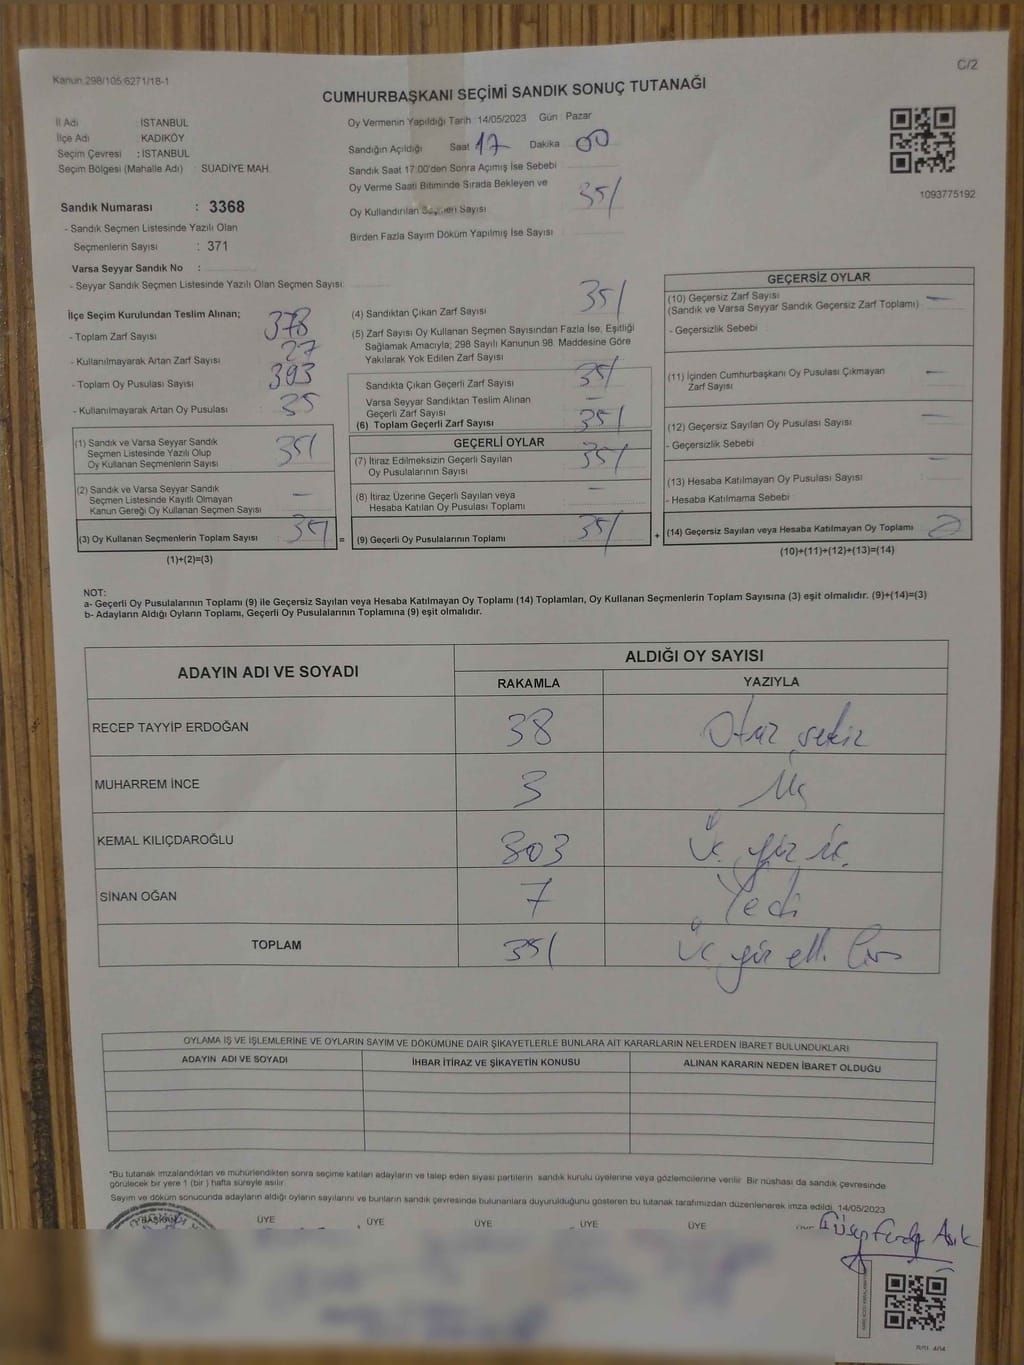 Kanun 298/105 6271/18-1
C/2
CUMHURBAŞKANI SEÇİMİ SANDIK SONUÇ TUTANAĞI
İl Adı : İSTANBUL
İlçe Adı : KADIKÖY
Seçim Çevresi : İSTANBUL
Seçim Bölgesi (Mahalle Adı) : SUADİYE MAH.
Sandık Numarası : 3368
- Sandık Seçmen Listesinde Yazılı Olan
Seçmenlerin Sayısı : 371
Varsa Seyyar Sandık No :
- Seyyar Sandık Seçmen Listesinde Yazılı Olan Seçmen Sayısı:
Oy Vermenin Yapıldığı Tarih 14/05/2023 Gün Pazar
Sandığın Açıldığı Saat 17 Dakika 00
Sandık Saat 17:00'den Sonra Açımış İse Sebebi
Oy Verme Saati Bitiminde Sırada Bekleyen ve
Oy Kullandırılan Seçmen Sayısı 351
Birden Fazla Sayım Döküm Yapılmış İse Sayısı
1093775192
İlçe Seçim Kurulundan Teslim Alınan;
- Toplam Zarf Sayısı 378
- Kullanılmayarak Artan Zarf Sayısı 27
- Toplam Oy Pusulası Sayısı 393
- Kullanılmayarak Artan Oy Pusulası 35
(1) Sandık ve Varsa Seyyar Sandık
Seçmen Listesinde Yazılı Olup
Oy Kullanan Seçmenlerin Sayısı 351
(2) Sandık ve Varsa Seyyar Sandık
Seçmen Listesinde Kayıtlı Olmayan
Kanun Gereği Oy Kullanan Seçmen Sayısı —
(3) Oy Kullanan Seçmenlerin Toplam Sayısı 351 =
(1)+(2)=(3)
(4) Sandıktan Çıkan Zarf Sayısı 351
(5) Zarf Sayısı Oy Kullanan Seçmen Sayısından Fazla İse, Eşitliği
Sağlamak Amacıyla; 298 Sayılı Kanunun 98. Maddesine Göre
Yakılarak Yok Edilen Zarf Sayısı
Sandıkta Çıkan Geçerli Zarf Sayısı 351
Varsa Seyyar Sandıktan Teslim Alınan
Geçerli Zarf Sayısı —
(6) Toplam Geçerli Zarf Sayısı 351
GEÇERLİ OYLAR
(7) İtiraz Edilmeksizin Geçerli Sayılan
Oy Pusulalarının Sayısı 351
(8) İtiraz Üzerine Geçerli Sayılan veya
Hesaba Katılan Oy Pusulası Toplamı —
(9) Geçerli Oy Pusulalarının Toplamı 351 +
GEÇERSİZ OYLAR
(10) Geçersiz Zarf Sayısı —
(Sandık ve Varsa Seyyar Sandık Geçersiz Zarf Toplamı)
- Geçersizlik Sebebi
(11) İçinden Cumhurbaşkanı Oy Pusulası Çıkmayan —
Zarf Sayısı
(12) Geçersiz Sayılan Oy Pusulası Sayısı —
- Geçersizlik Sebebi
(13) Hesaba Katılmayan Oy Pusulası Sayısı —
- Hesaba Katılmama Sebebi
(14) Geçersiz Sayılan veya Hesaba Katılmayan Oy Toplamı
(10)+(11)+(12)+(13)=(14)
NOT:
a- Geçerli Oy Pusulalarının Toplamı (9) ile Geçersiz Sayılan veya Hesaba Katılmayan Oy Toplamı (14) Toplamları, Oy Kullanan Seçmenlerin Toplam Sayısına (3) eşit olmalıdır. (9)+(14)=(3)
b- Adayların Aldığı Oyların Toplamı, Geçerli Oy Pusulalarının Toplamına (9) eşit olmalıdır.
ADAYIN ADI VE SOYADI ALDIĞI OY SAYISI
RAKAMLA YAZIYLA
RECEP TAYYİP ERDOĞAN 38 Otuz sekiz
MUHARREM İNCE 3 Üç
KEMAL KILIÇDAROĞLU 303 Üç yüz üç
SİNAN OĞAN 7 Yedi
TOPLAM 351 Üç yüz elli bir
OYLAMA İŞ VE İŞLEMLERİNE VE OYLARIN SAYIM VE DÖKÜMÜNE DAİR ŞİKAYETLERLE BUNLARA AİT KARARLARIN NELERDEN İBARET BULUNDUKLARI
ADAYIN ADI VE SOYADI İHBAR İTİRAZ VE ŞİKAYETİN KONUSU ALINAN KARARIN NEDEN İBARET OLDUĞU
*Bu tutanak imzalandıktan ve mühürlendikten sonra seçime katılan adayların ve talep eden siyasi partilerin sandık kurulu üyelerine veya gözlemcilerine verilir. Bir nüshası da sandık çevresinde
görülecek bir yere 1 (bir ) hafta süreyle asılır.
Sayım ve döküm sonucunda adayların aldığı oyların sayılarını ve bunların sandık çevresinde bulunanlara duyurulduğunu gösteren bu tutanak tarafımızdan düzenlenerek imza edildi. 14/05/2023
BAŞKAN ÜYE ÜYE ÜYE ÜYE ÜYE
Aşık